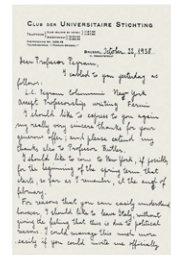 CLUB DER UNIVERSITAIRE STICHTING
October 22, 1938
Dear Professor Pegram,
I cabled to you yesterday as
follows:
Accept Professorship writing Fermi
I should like to express to you again
my really very sincere thanks for your
generous offer; and please extend my
thanks also to Professor Butler.
I should like to come to New York, if possible
for the beginning of the spring term that
starts, so far as I remember, at the end of
february.
For reasons that you can easily understand
however, I should like to leave Italy, without
giving the feeling that this is due to political
reasons. I could manage this much more
easily if you could write me officially